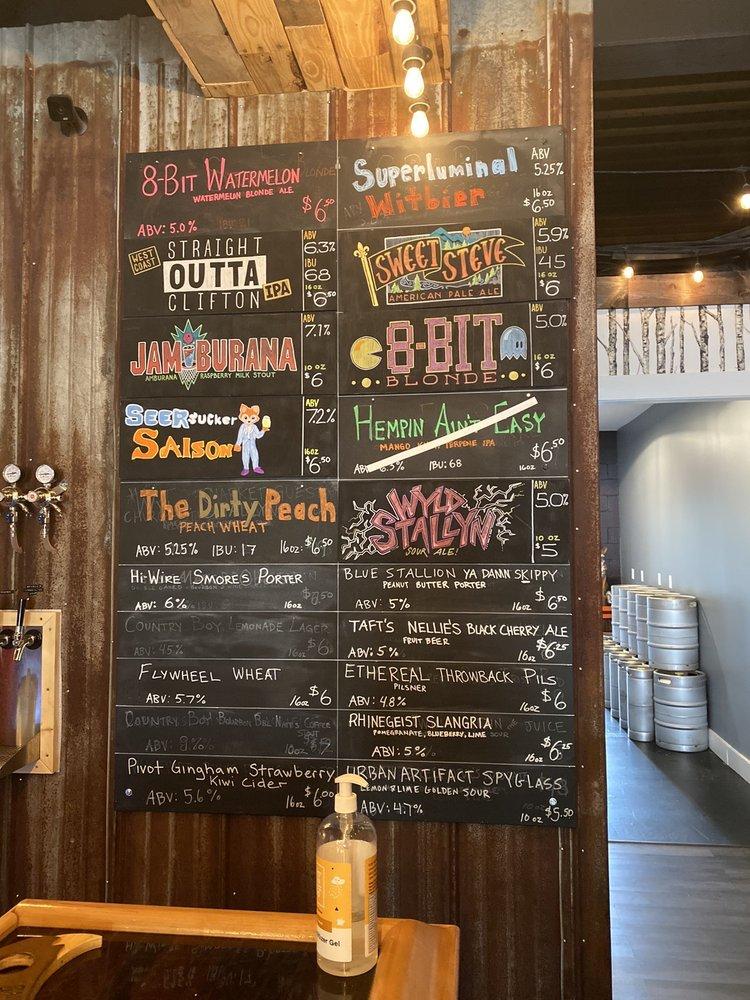 8-Bit Watermelon
Watermelon Blonde Ale
$6.50
ABV: 5.0%
Superluminal
Witbier
ABV
5.25%
16oz
$6.50
West Coast
STRAIGHT
OUTTA
CLIFTON
IPA
ABV
6.3%
IBU
68
16 oz
$6.50
SWEET STEVE
AMERICAN PALE ALE
ABV
5.9%
IBU
45
16 oz
$6
JAMBURANA
AMBURANA RASPBERRY MILK STOUT
ABV
7.1%
10 oz
$6
8-BIT
BLONDE
ABV
5.0%
16 oz
$6
SEERSUCKER
SAISON
ABV
7.2%
16oz
$6.50
HEMPIN AIN'T EASY
MANGO TERPENE IPA
6.3% IBU: 68
16oz
$6.50
The Dirty Peach
PEACH WHEAT
ABV: 5.25% IBU: 17 16oz: $6.50
WYLD
STALLYN
SOUR ALE!
ABV
5.0%
10 oz
$5
Hi-Wire Smores Porter
ABV: 6% 16oz $6.50
BLUE STALLION YA DAMN SKIPPY
PEANUT BUTTER PORTER
ABV: 5% 16oz $6.50
Country Boy Lemonade Lager
4.5% 16oz $6
TAFT'S NELLIE'S BLACK CHERRY ALE
FRUIT BEER
ABV: 5% 16oz $6.25
FLYWHEEL WHEAT
ABV: 5.7% 16oz $6
ETHEREAL THROWBACK PILS
PILSNER
ABV: 4.8% 16oz $6
Country Boy Bourbon Coffee
RHINEGEIST SLANGRIA
POMEGRANATE, BLUEBERRY, LIME
JUICE
ABV: 5% 16oz $6.25
Pivot Gingham Strawberry
Kiwi Cider
ABV: 5.6% 16oz $6.00
URBAN ARTIFACT SPYGLASS
LEMON LIME GOLDEN SOUR
ABV: 4.7% 10 oz $5.50
Gel